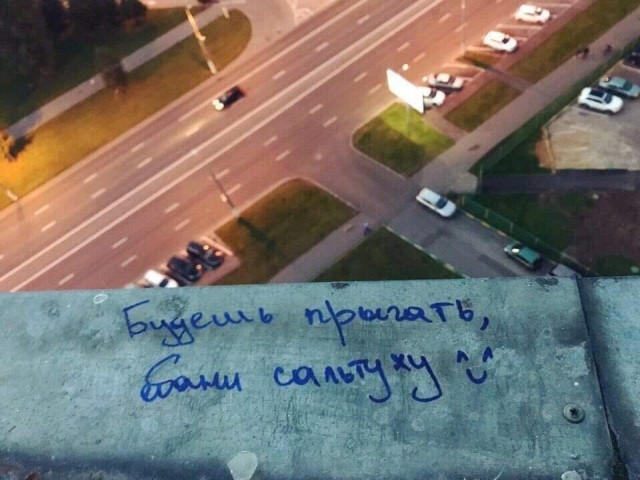 Будешь прыгать,
ебани сальтуху ^◡^